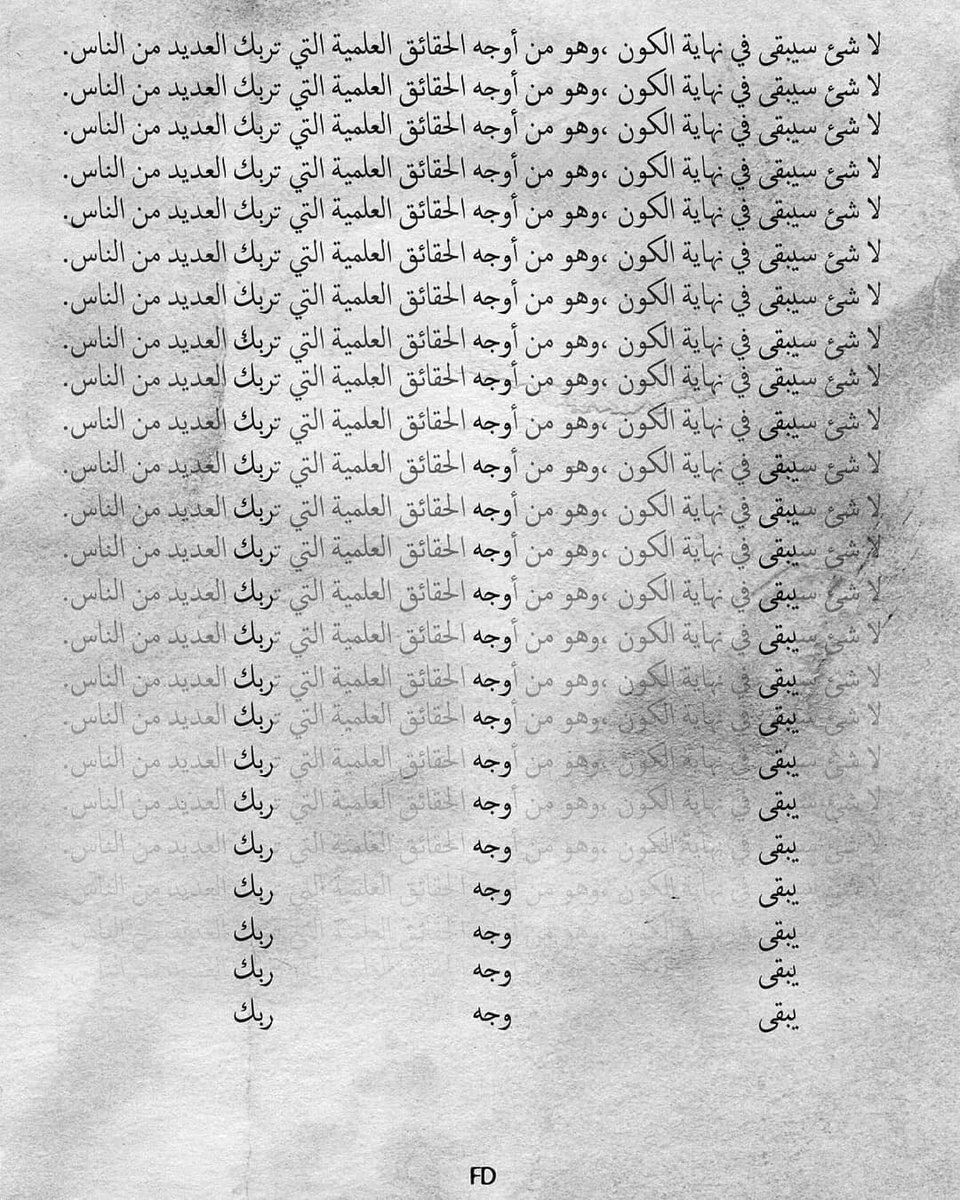 لا شئ سيبقى في نهاية الكون ،وهو من أوجه الحقائق العلمية التي تربك العديد من الناس.
لا شئ سيبقى في نهاية الكون ،وهو من أوجه الحقائق العلمية التي تربك العديد من الناس.
لا شئ سيبقى في نهاية الكون ،وهو من أوجه الحقائق العلمية التي تربك العديد من الناس.
لا شئ سيبقى في نهاية الكون ،وهو من أوجه الحقائق العلمية التي تربك العديد من الناس.
لا شئ سيبقى في نهاية الكون ،وهو من أوجه الحقائق العلمية التي تربك العديد من الناس.
لا شئ سيبقى في نهاية الكون ،وهو من أوجه الحقائق العلمية التي تربك العديد من الناس.
لا شئ سيبقى في نهاية الكون ،وهو من أوجه الحقائق العلمية التي تربك العديد من الناس.
لا شئ سيبقى في نهاية الكون ،وهو من أوجه الحقائق العلمية التي تربك العديد من الناس.
لا شئ سيبقى في نهاية الكون ،وهو من أوجه الحقائق العلمية التي تربك العديد من الناس.
لا شئ سيبقى في نهاية الكون ،وهو من أوجه الحقائق العلمية التي تربك العديد من الناس.
لا شئ سيبقى في نهاية الكون ،وهو من أوجه الحقائق العلمية التي تربك العديد من الناس.
لا شئ سيبقى في نهاية الكون ،وهو من أوجه الحقائق العلمية التي تربك العديد من الناس.
لا شئ سيبقى في نهاية الكون ،وهو من أوجه الحقائق العلمية التي تربك العديد من الناس.
لا شئ سيبقى في نهاية الكون ،وهو من أوجه الحقائق العلمية التي تربك العديد من الناس.
لا شئ سيبقى في نهاية الكون ،وهو من أوجه الحقائق العلمية التي تربك العديد من الناس.
لا شئ سيبقى في نهاية الكون ،وهو من أوجه الحقائق العلمية التي تربك العديد من الناس.
لا شئ سيبقى في نهاية الكون ،وهو من أوجه الحقائق العلمية التي تربك العديد من الناس.
لا شئ سيبقى في نهاية الكون ،وهو من أوجه الحقائق العلمية التي تربك العديد من الناس.
لا شئ سيبقى في نهاية الكون ،وهو من أوجه الحقائق العلمية التي تربك العديد من الناس.
لا شئ سيبقى في نهاية الكون ،وهو من أوجه الحقائق العلمية التي تربك العديد من الناس.
لا شئ سيبقى في نهاية الكون ،وهو من أوجه الحقائق العلمية التي تربك العديد من الناس.
يبقى وجه ربك
يبقى وجه ربك
يبقى وجه ربك
FD